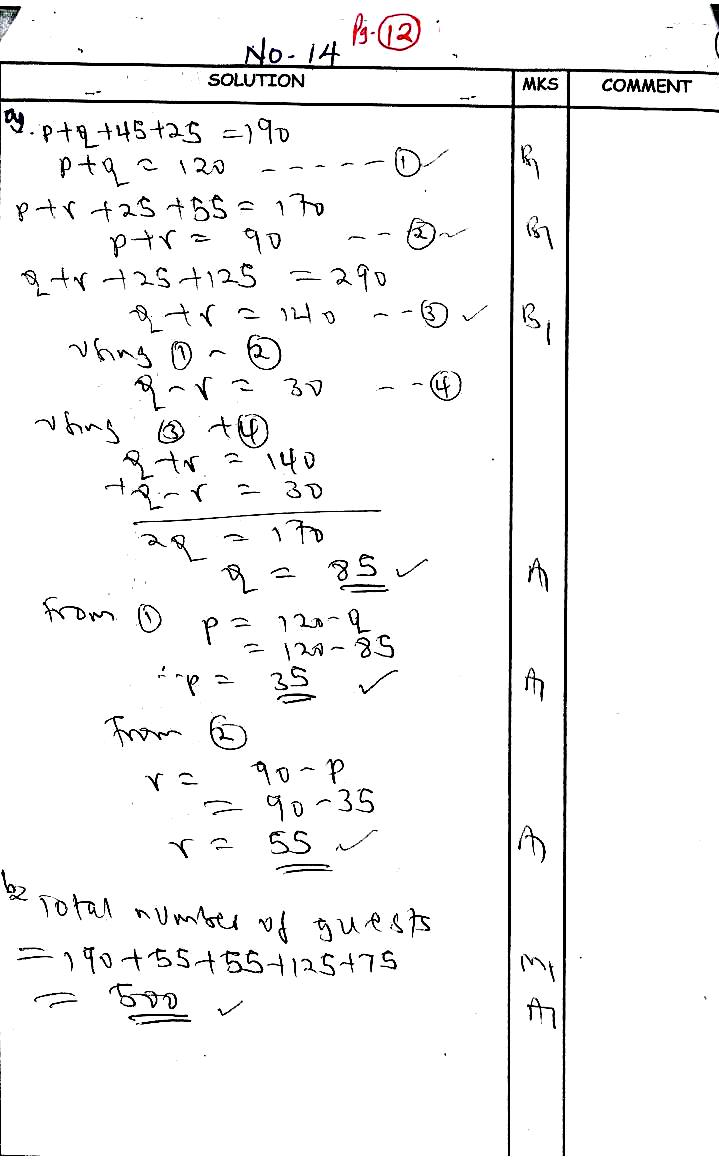 Pg. 12
No - 14
SOLUTION MKS COMMENT
a. p+q+45+25 = 190
p+q = 120 ------ ① ✓ B1
p+r+25+55 = 170
p+r = 90 -- ② ✓ B1
q+r+25+125 = 290
q+r = 140 -- ③ ✓ B1
Using ① - ②
q-r = 30 -- ④
Using ③ + ④
q+r = 140
+q-r = 30
2q = 170
q = 85 ✓ A1
From ① p = 120-q
= 120-85
∴ p = 35 ✓ A1
From ②
r = 90-p
= 90-35
r = 55 ✓ A1
b Total number of guests
= 190+55+55+125+75 M1
= 500 ✓ A1